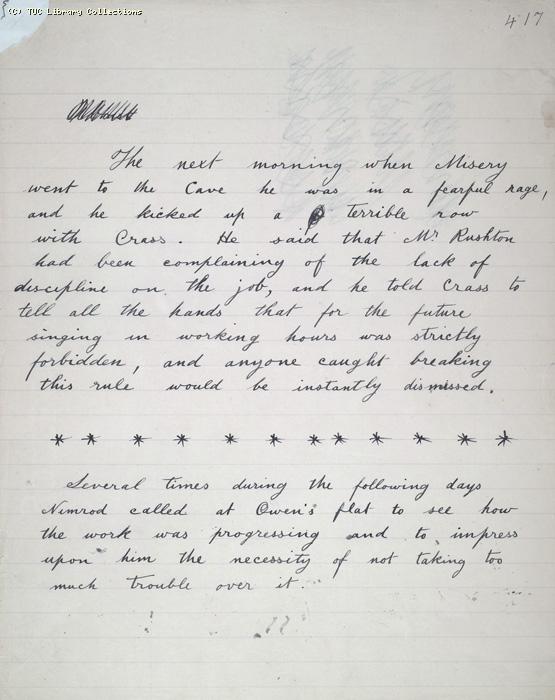 (C) TUC Library Collections
417
The next morning when Misery
went to the Cave he was in a fearful rage,
and he kicked up a terrible row
with Crass. He said that Mr Rushton
had been complaining of the lack of
discipline on the job, and he told Crass to
tell all the hands that for the future
singing in working hours was strictly
forbidden, and anyone caught breaking
this rule would be instantly dismissed.
* * * * * * * * * * * *
Several times during the following days
Nimrod called at Owen's flat to see how
the work was progressing and to impress
upon him the necessity of not taking too
much trouble over it.